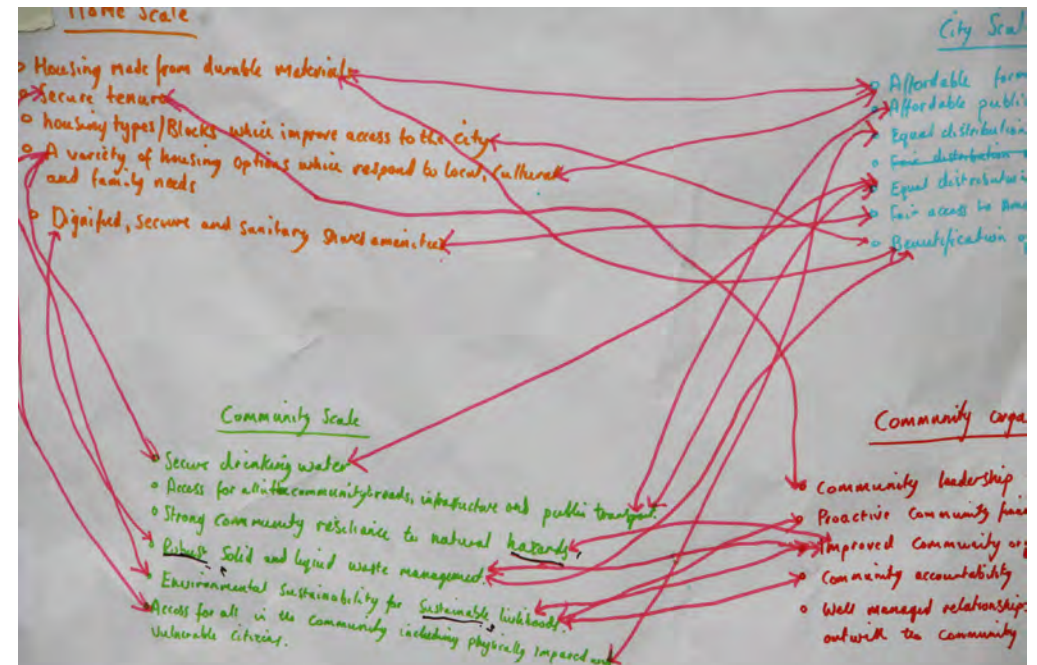 Home Scale
Housing made from durable materials
Secure tenure
housing types/Blocks which improve access to the city
A variety of housing options which respond to local, cultural
and family needs
Dignified, secure and sanitary shared amenities
City Scale
Affordable
Affordable public
Equal distribution
Fair distribution
Equal distribution
Fair access to
Beautification
Community Scale
Secure drinking water
Access for all in the community: roads, infrastructure and public transport.
Strong community resiliance to natural hazards,
Robust, Solid and liquid waste management
Environmental Sustainability for Sustainable, livlihoods.
Access for all in the community including physically impared and
vulnerable citizens.
Community
Community leadership
Proactive Community
Improved Community
Community accountability
Well managed relationships
outwith the community